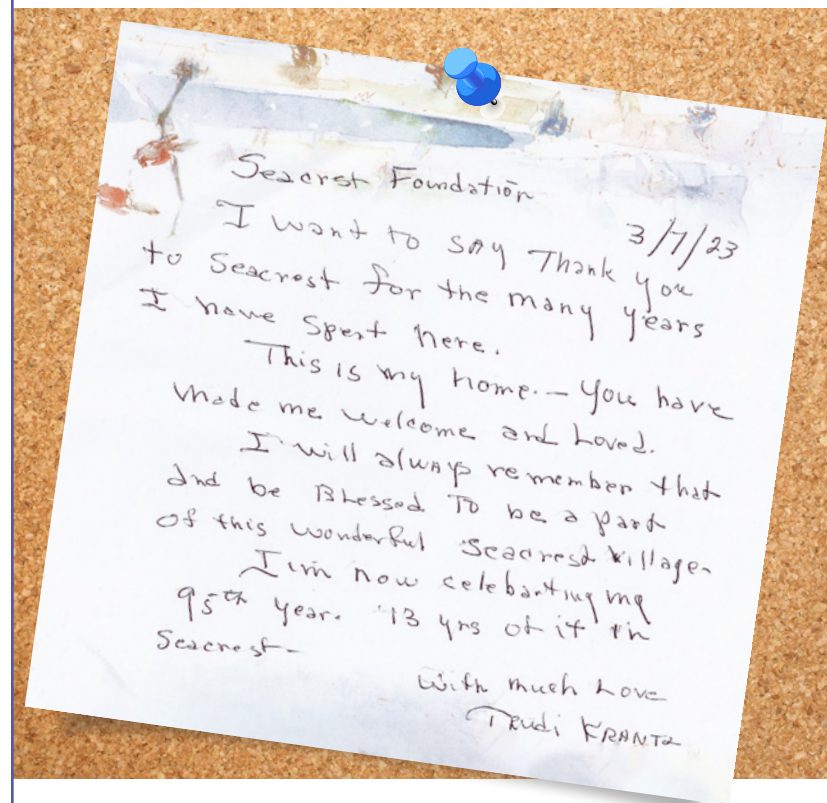 Seacrest Foundation
3/7/23
I want to say Thank you
to Seacrest for the many years
I have Spent here.
This is my home. - You have
made me welcome and Loved.
I will always remember that
and be Blessed To be a part
of this wonderful Seacrest Village.
I'm now celebarting my
95th year. 13 yrs of it in
Seacrest-
With much Love
Trudi KRANTZ